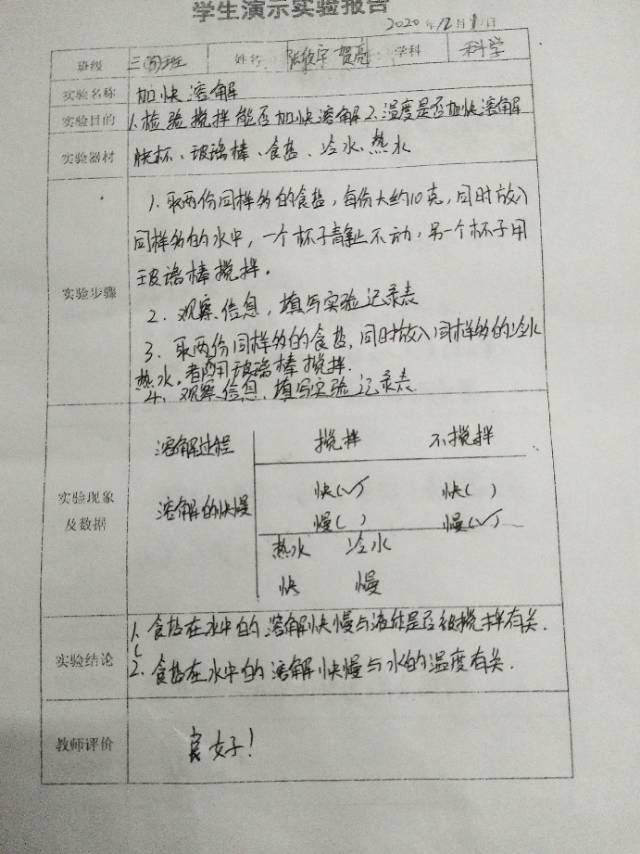 学生演示实验报告
2020年12月1日
班级 三(3)班 姓名 贺亮 学科 科学
实验名称 加快溶解
实验目的 1.检验搅拌能否加快溶解2.温度是否加快溶解
实验器材 烧杯、玻璃棒、食盐、冷水、热水
1.取两份同样多的食盐,每份大约10克,同时放入
同样多的水中,一个杯子静止不动,另一个杯子用
玻璃棒搅拌。
实验步骤
2.观察信息,填写实验记录表
3.取两份同样多的食盐,同时放入同样多的冷水
热水,都用玻璃棒搅拌.
4.观察信息,填写实验记录表
溶解过程 搅拌 不搅拌
实验现象
及数据
溶解的快慢 快(√) 快( )
慢( ) 慢(√)
热水 冷水
快 慢
实验结论
1.食盐在水中的溶解快慢与液体是否被搅拌有关.
2.食盐在水中的溶解快慢与水的温度有关.
教师评价 良好!